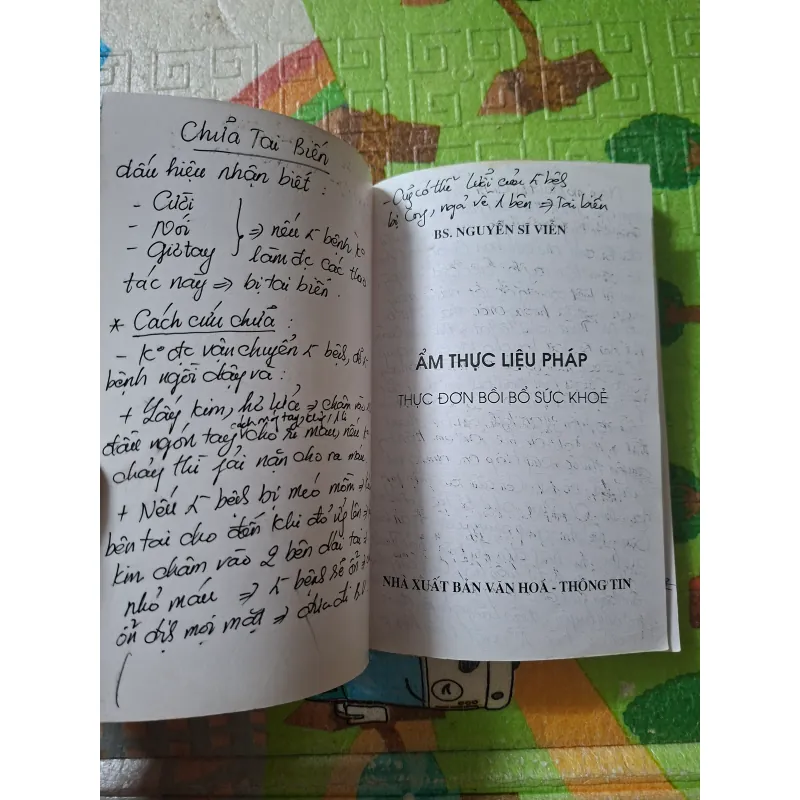 Chữa Tai Biến
dấu hiệu nhận biết :
- Cười
- Nói
- Giơ tay
⇒ nếu ng bệnh k°
làm đc các thao
tác này ⇒ bị tai biến.
* Cách cứu chữa :
- K° đc vận chuyển ng bệnh, để
bệnh ngồi dậy và :
+ Lấy kim, hơ lửa ⇒ châm vào
đầu ngón tay cho ra máu, nếu k°
chảy thì fải nặn cho ra máu
+ Nếu ng bệnh bị méo mồm ⇒
bên tai cho đến khi đỏ ửng lên ⇒
kim châm vào 2 bên dái tai
nhỏ máu ⇒ ng bệnh sẽ ổn
ổn định mọi mặt ⇒ đưa đi b.v
- Cũng có thể lưỡi của ng bệnh
bị cong, ngả về 1 bên ⇒ Tai biến
BS. NGUYỄN SĨ VIỄN
ẨM THỰC LIỆU PHÁP
THỰC ĐƠN BỒI BỔ SỨC KHOẺ
NHÀ XUẤT BẢN VĂN HOÁ - THÔNG TIN